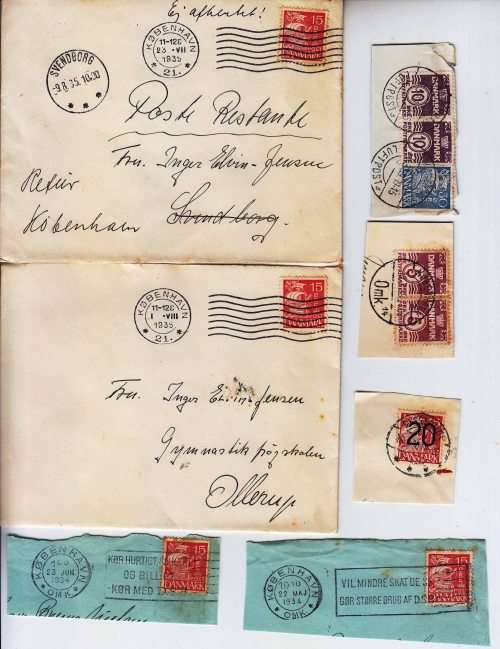 Ej afhentet!
KØBENHAVN
11-12E
23 · VII
1935
* 21. *
15
DANMARK
SVENDBORG
-9.8.35. 10.00
Poste Restante
Frn. Inger Elvin-Jensen
Retur
Svendborg.
København
KØBENHAVN
11-12E
1 · VIII
1935
* 21. *
15
DANMARK
Frn. Inger Elvin-Jensen
Gymnastikhøjskolen
Ollerup
LUFTPOST
10
DANMARK
10
DANMARK
LUFTPOST
DANMARK
Omk.
5
DANMARK
5
DANMARK
20
DANMARK
KØBENHAVN
23 JUN.
1934
OMK
KØR HURTIGT,
OG BILL
KØR MED
15
DANMARK
KØBENHAVN
22 MAJ
1934
OMK
VIL MINDRE SKAT DE
GØR STØRRE BRUG AF D.S.B
15
DANMARK